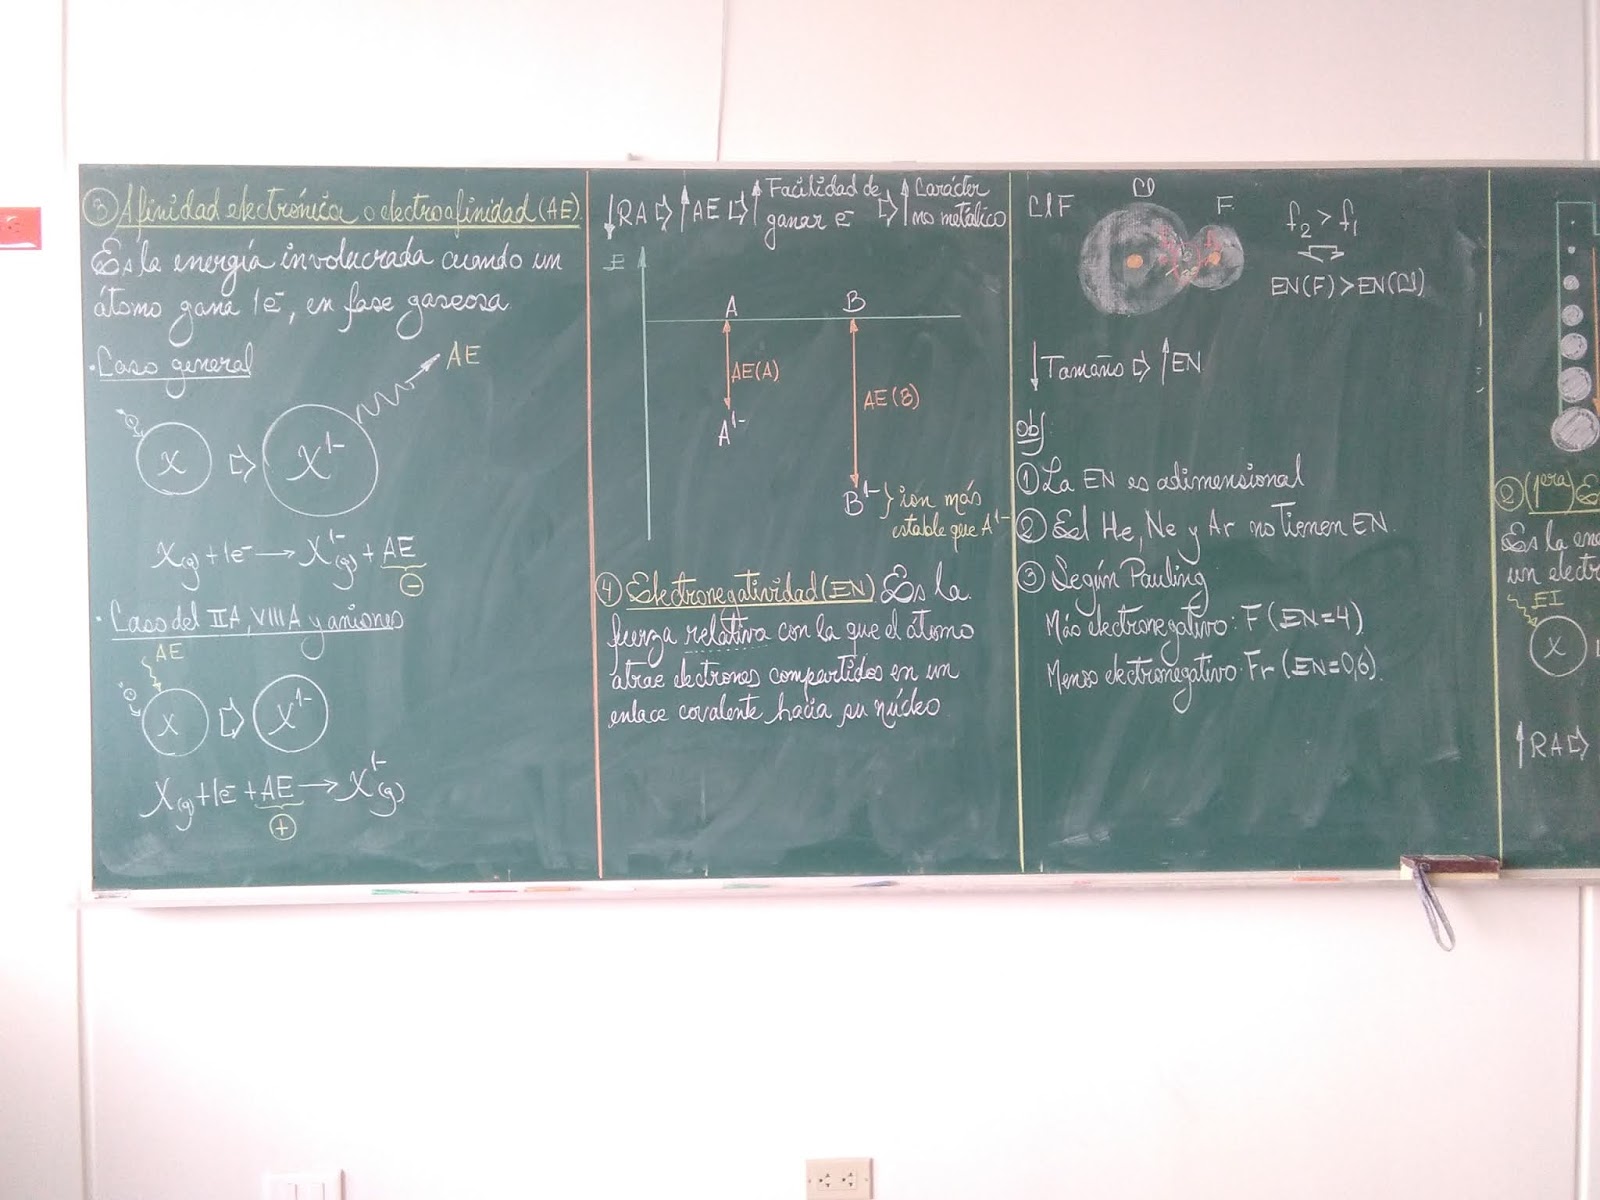 ③ Afinidad electrónica o electroafinidad (AE).
Es la energía involucrada cuando un
átomo gana 1e⁻, en fase gaseosa
• Caso general
AE
X ⇨ X¹⁻
X(g) + 1e⁻ → X¹⁻(g) + AE
⊖
• Caso del IIA, VIIIA y aniones
AE
X ⇨ X¹⁻
X(g) + 1e⁻ + AE → X¹⁻(g)
⊕
↓RA ⇨ ↑AE ⇨ ↑Facilidad de ganar e⁻ ⇨ ↑Carácter no metálico
E
A B
AE(A)
AE(B)
A¹⁻
B¹⁻ } ion más
estable que A¹⁻
④ Electronegatividad (EN) Es la
fuerza relativa con la que el átomo
atrae electrones compartidos en un
enlace covalente hacia su núcleo
ClF
Cl F
f₂ > f₁
EN(F) > EN(Cl)
↓Tamaño ⇨ ↑EN
Obs:
① La EN es adimensional
② El He, Ne y Ar no tienen EN.
③ Según Pauling
Más electronegativo: F (EN=4)
Menos electronegativo: Fr (EN=0,6).
② (1era) E
Es la ene
un electr
EI
X
↑RA ⇨